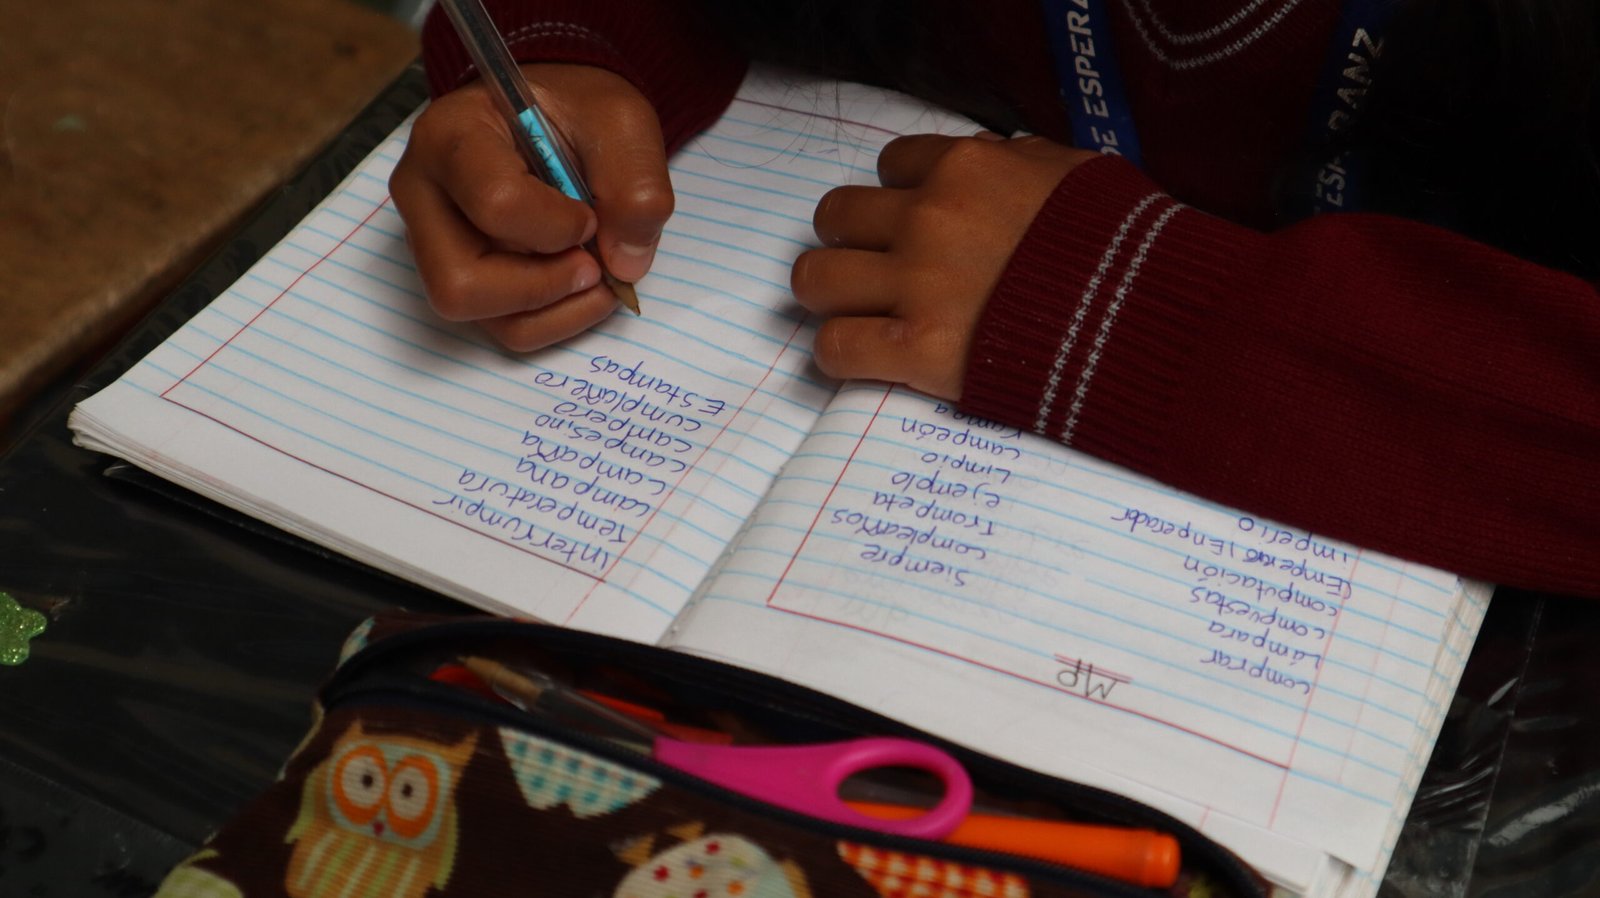 MP
comprar
Lámpara
compuestas
computación
Enperador
imperio
Siempre
compleaños
Trompeta
ejemplo
Limpio
campeón
Interrumpir
Temperatura
campana
campaña
campesino
campero
cumplañero
Estampas
DE ESPERA
ESPERANZ